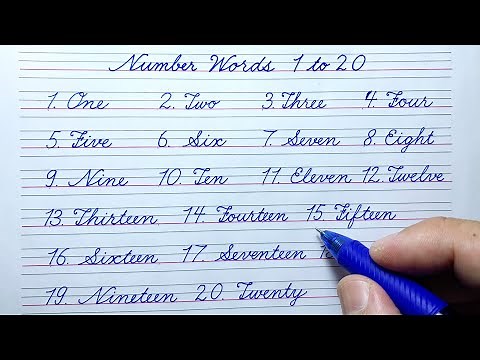 Number Words 1 to 20
1. One 2. Two 3. Three 4. Four
5. Five 6. Six 7. Seven 8. Eight
9. Nine 10. Ten 11. Eleven 12. Twelve
13. Thirteen 14. Fourteen 15. Fifteen
16. Sixteen 17. Seventeen
19. Nineteen 20. Twenty